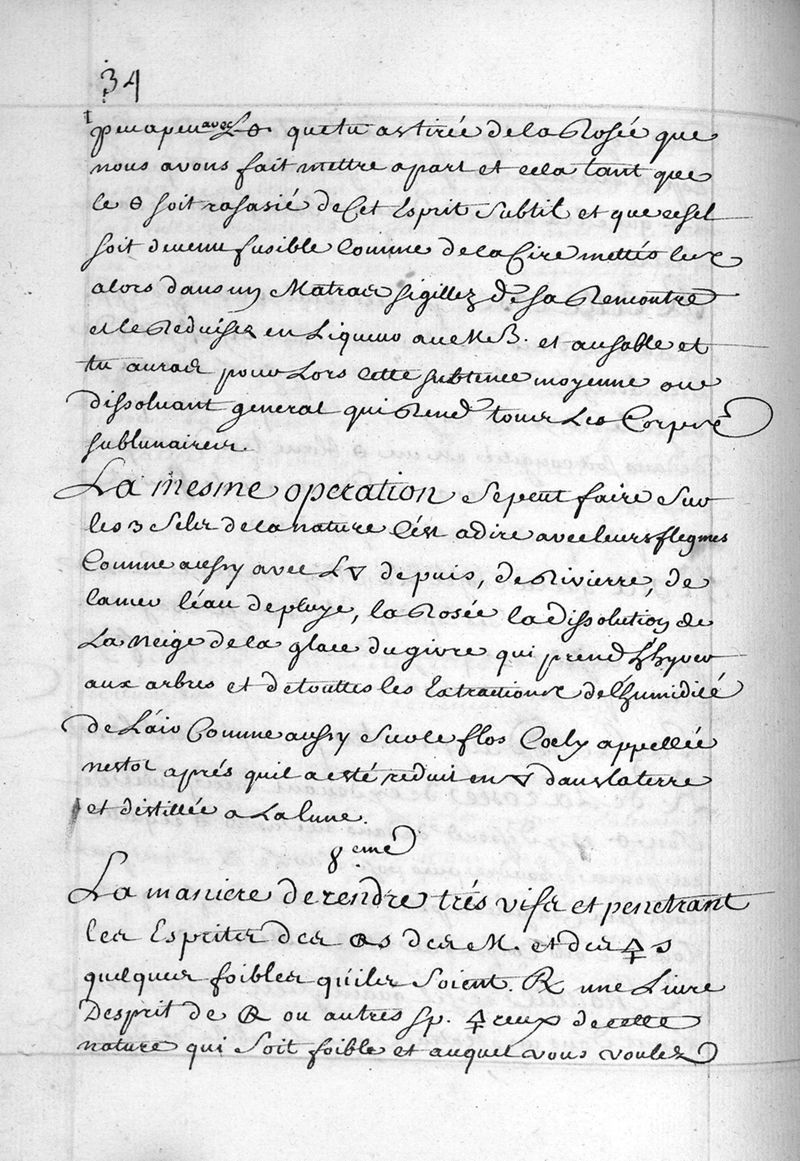 34
peu a peu avec L🜔 que tu as tirée de la Rosée que
nous avons fait mettre apart et cela tant que
le 🜔 soit rasasié de Cet Esprit subtil et que ce sel
soit devenu fusible Comme de la Cire mettés les
alors dans un Matras sigillez de sa Rencontre
et le Reduises en Liqueur au M B. et au sable et
tu auras pour Lors cette substence moyenne ou
dissoluant general qui Rend tous Les Corps
sublunaires.
La mesme operation se peut faire sur
les 3 sels de la nature C'ést a dire avec leurs flegmes
Comme aussy avec L🜄 de puis, de Rivierre, de
la mer l'éau de pluye, la Rosée la dissolution de
La neige de la glace du givre qui prend L'hyver
aux arbres et de touttes les Extractions de l'humidité
de L'air Comme aussy sur le flos Coely appellée
nostoc aprés qu'il a esté reduit en 🜄 dans la terre
et distillée a La lune.
8eme
La maniere de rendre trés vifs et penetrant
les Esprits des 🜕s des M. et des 🜍s
quelques foibles qu'ils soient. ℞ une Livre
Desprit de 🜕 ou autres sp. 🜍reux de cette
nature qui soit foible et auquel vous voulez